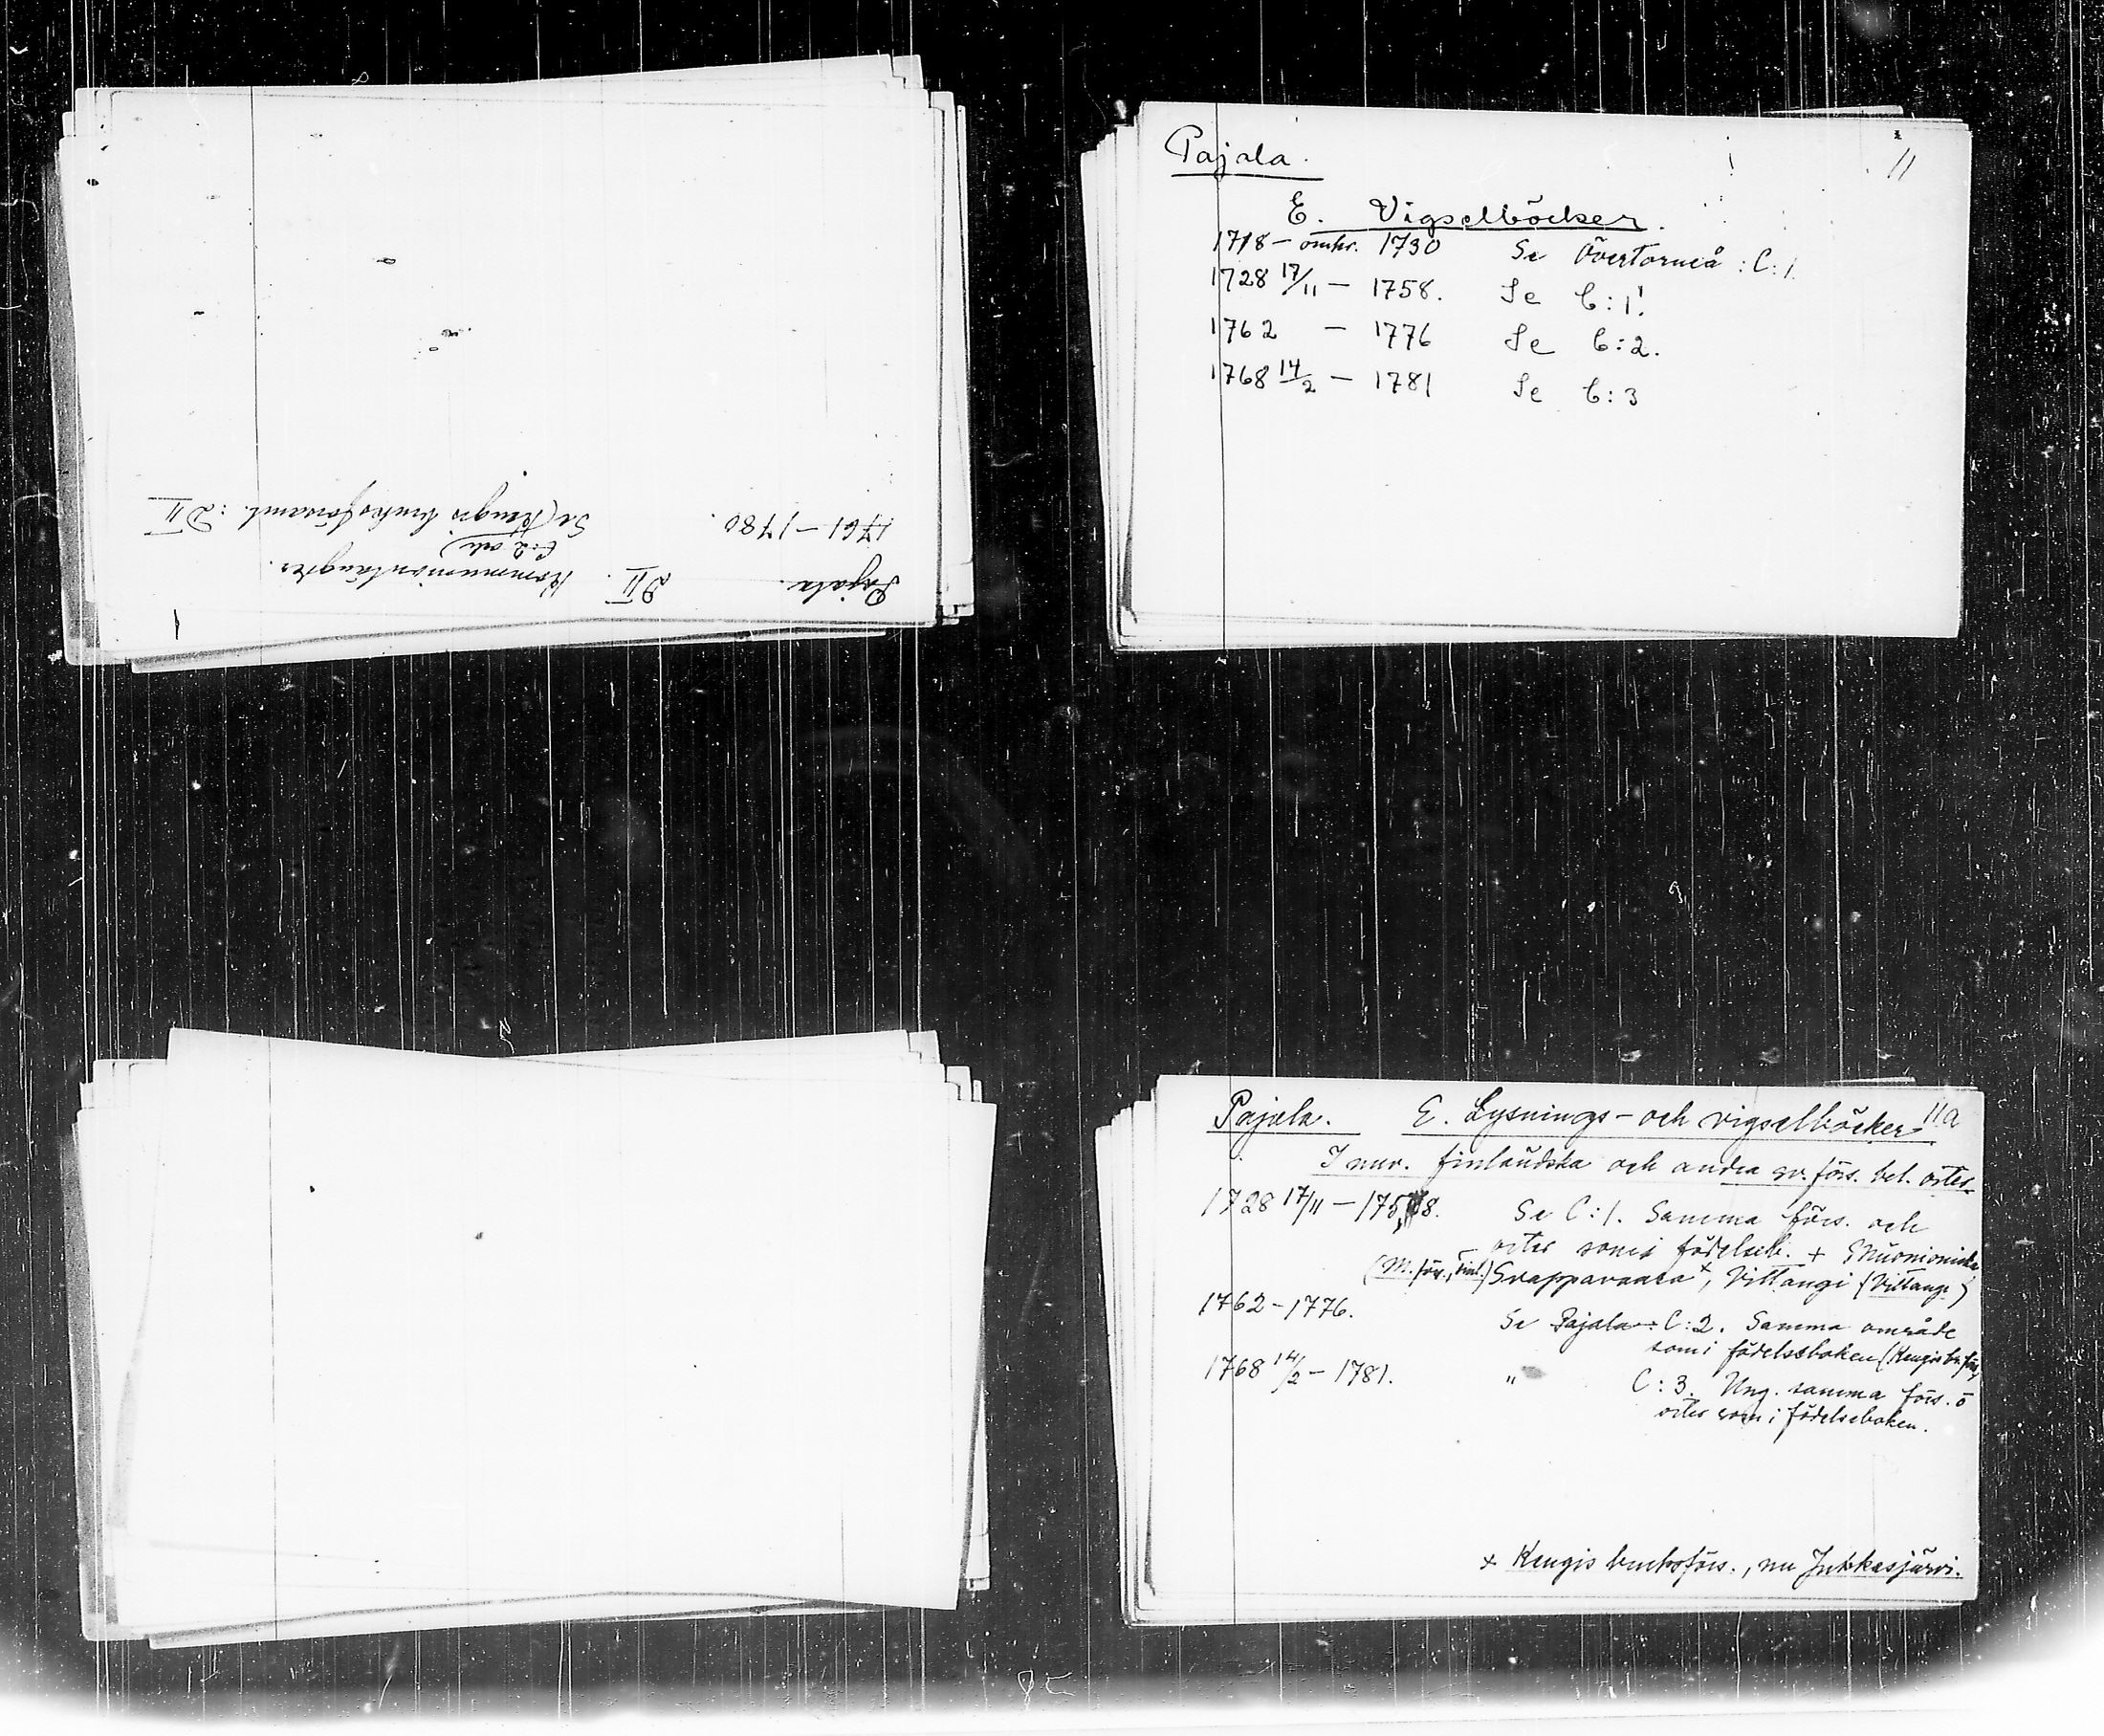 Pajala. D II. Kommunionlängder.
C:2 och
1761-1780. Se Kengis bruksförsaml.: D II
Pajala.
11
E. Vigselböcker.
1718 - omkr. 1730 Se Övertorneå: C:1.
1728 17/11 - 1758. Se C:1.
1762 - 1776 Se C:2.
1768 14/2 - 1781 Se C:3
Pajala. E. Lysnings- och vigselböcker 11a
I nuv. finländska och andra sv. förs. bel. orter
1728 17/11 - 1758. Se C:1. Samma förs. och
orter som i födelseb. + Muonioniska
(M. för., Finl.) Svappavaara x, Vittangi (Vittangi)
1762-1776. Se Pajala: C:2. Samma område
som i födelseboken (Kengis br. förs.)
1768 14/2 - 1781. " C:3. Ung. samma förs. o
orter som i födelseboken.
x Kengis bruksförs., nu Jukkasjärvi.